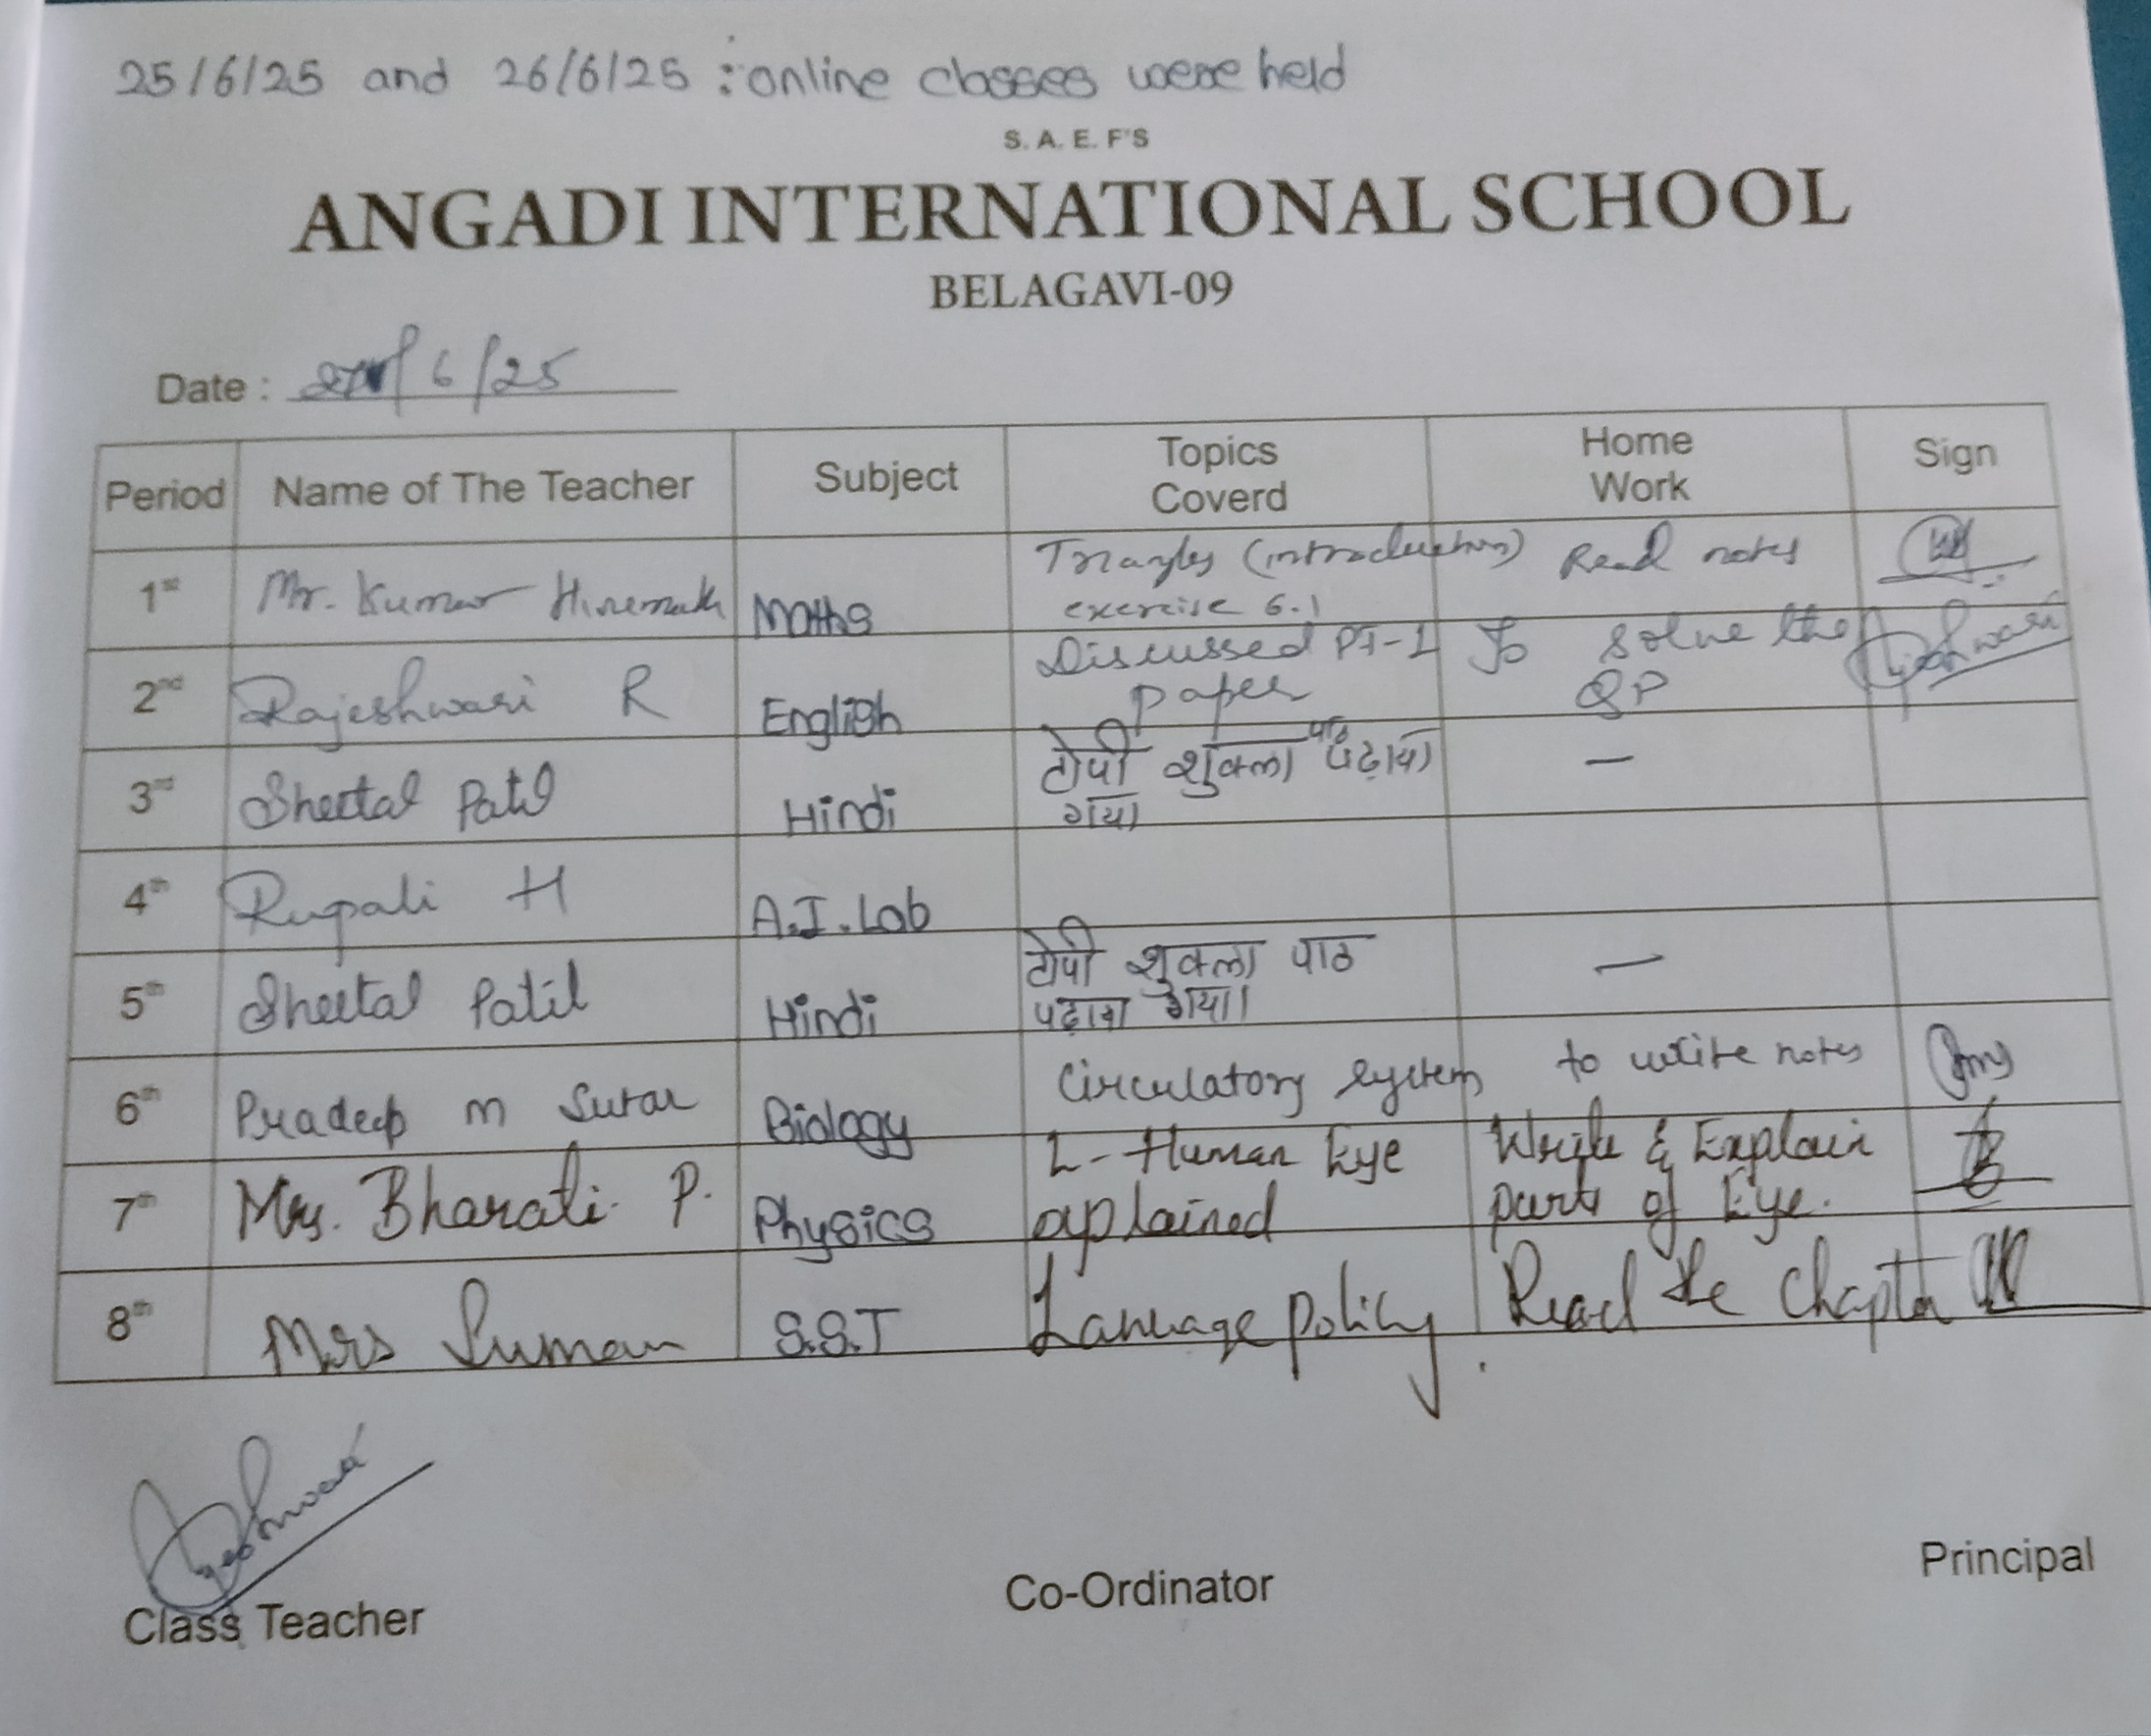 25/6/25 and 26/6/25 : online classes were held
S. A. E. F'S
ANGADI INTERNATIONAL SCHOOL
BELAGAVI-09
Date : /6/25
Period Name of The Teacher Subject Topics Coverd Home Work Sign
1st Mr. Kumar Hiremath Maths Triangles (introduction) exercise 6.1 Read notes
2nd Rajeshwari R English Discussed PT-1 paper To solve the QP
3rd Sheetal Patil Hindi टोपी शुक्ला पाठ पढ़ाया गया —
4th Rupali H A.I. Lab
5th Sheetal Patil Hindi टोपी शुक्ला पाठ पढ़ाया गया। —
6th Pradeep m Sutar Biology Circulatory system to write notes
7th Mrs. Bharati. P. Physics L- Human Eye explained Write & Explain parts of Eye.
8th Mrs Suman S.S.T Lanuage policy. Read the Chapter
Class Teacher
Co-Ordinator
Principal